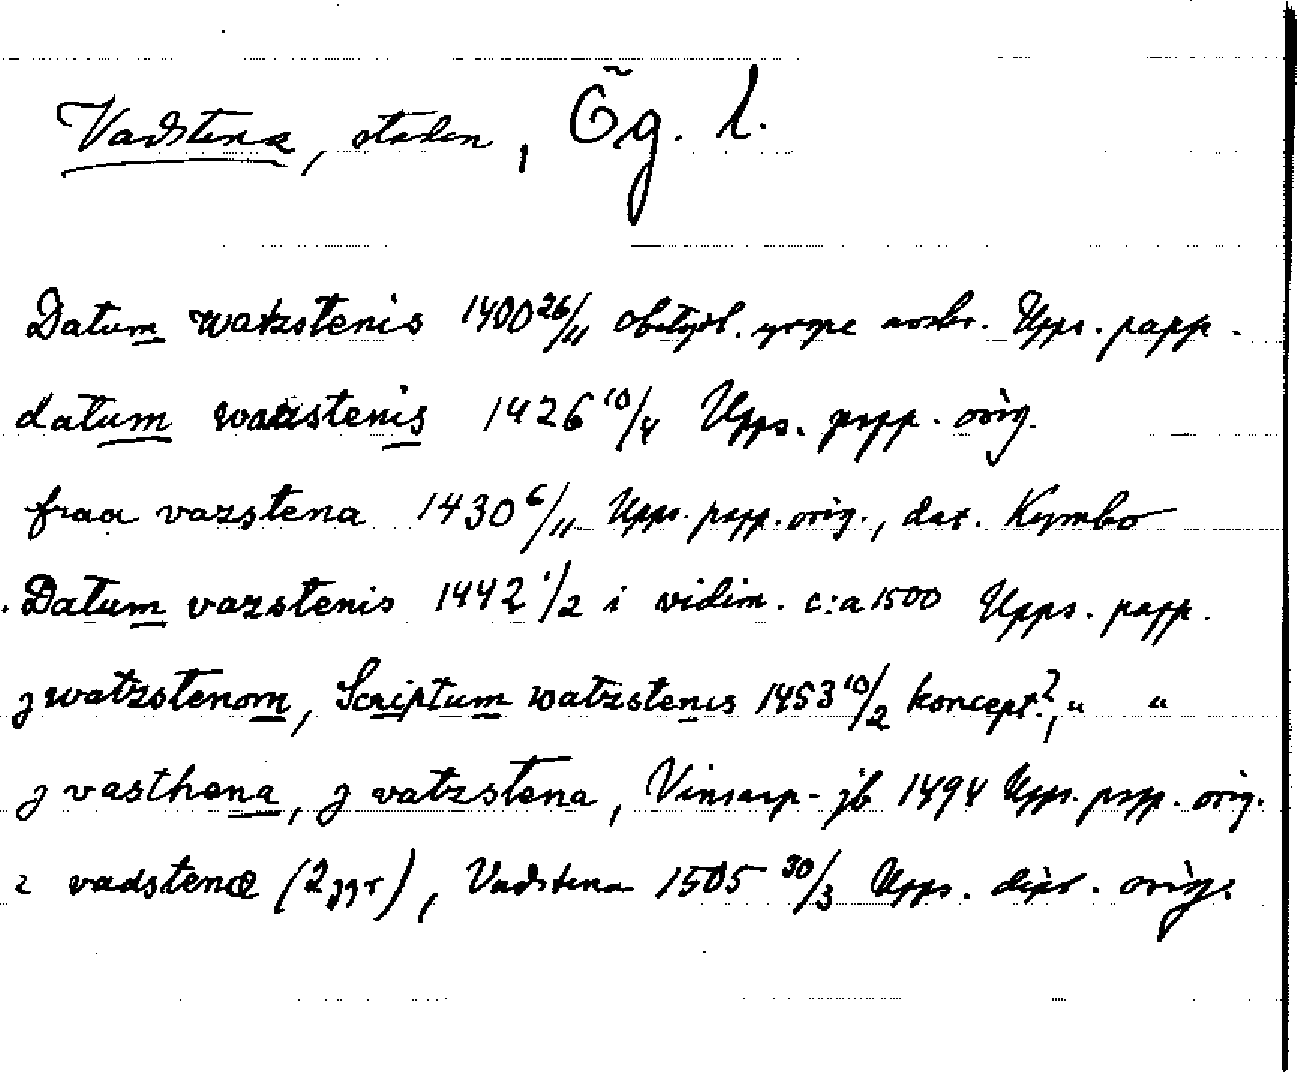 Vadstena, staden, Ög. l.
Datum watzstenis 1400 26/11 obetydl. yngre avskr. Upps. papp.
datum wazstenis 1426 10/4 Upps. papp. orig.
fraa vazstena 1430 6/11 Upps. papp. orig., dat. Kymbo
Datum vazstenis 1442 1/2 i vidim. c:a 1500 Upps. papp.
j watzstenom, Scriptum watzstenis 1453 10/2 koncept?, " "
j vasthena, j vatzstena, Vinsarp-jb 1494 Upps. papp. orig.
i vadstenæ (2 ggr), Vadstena 1505 30/3 Upps. dipl. orig.